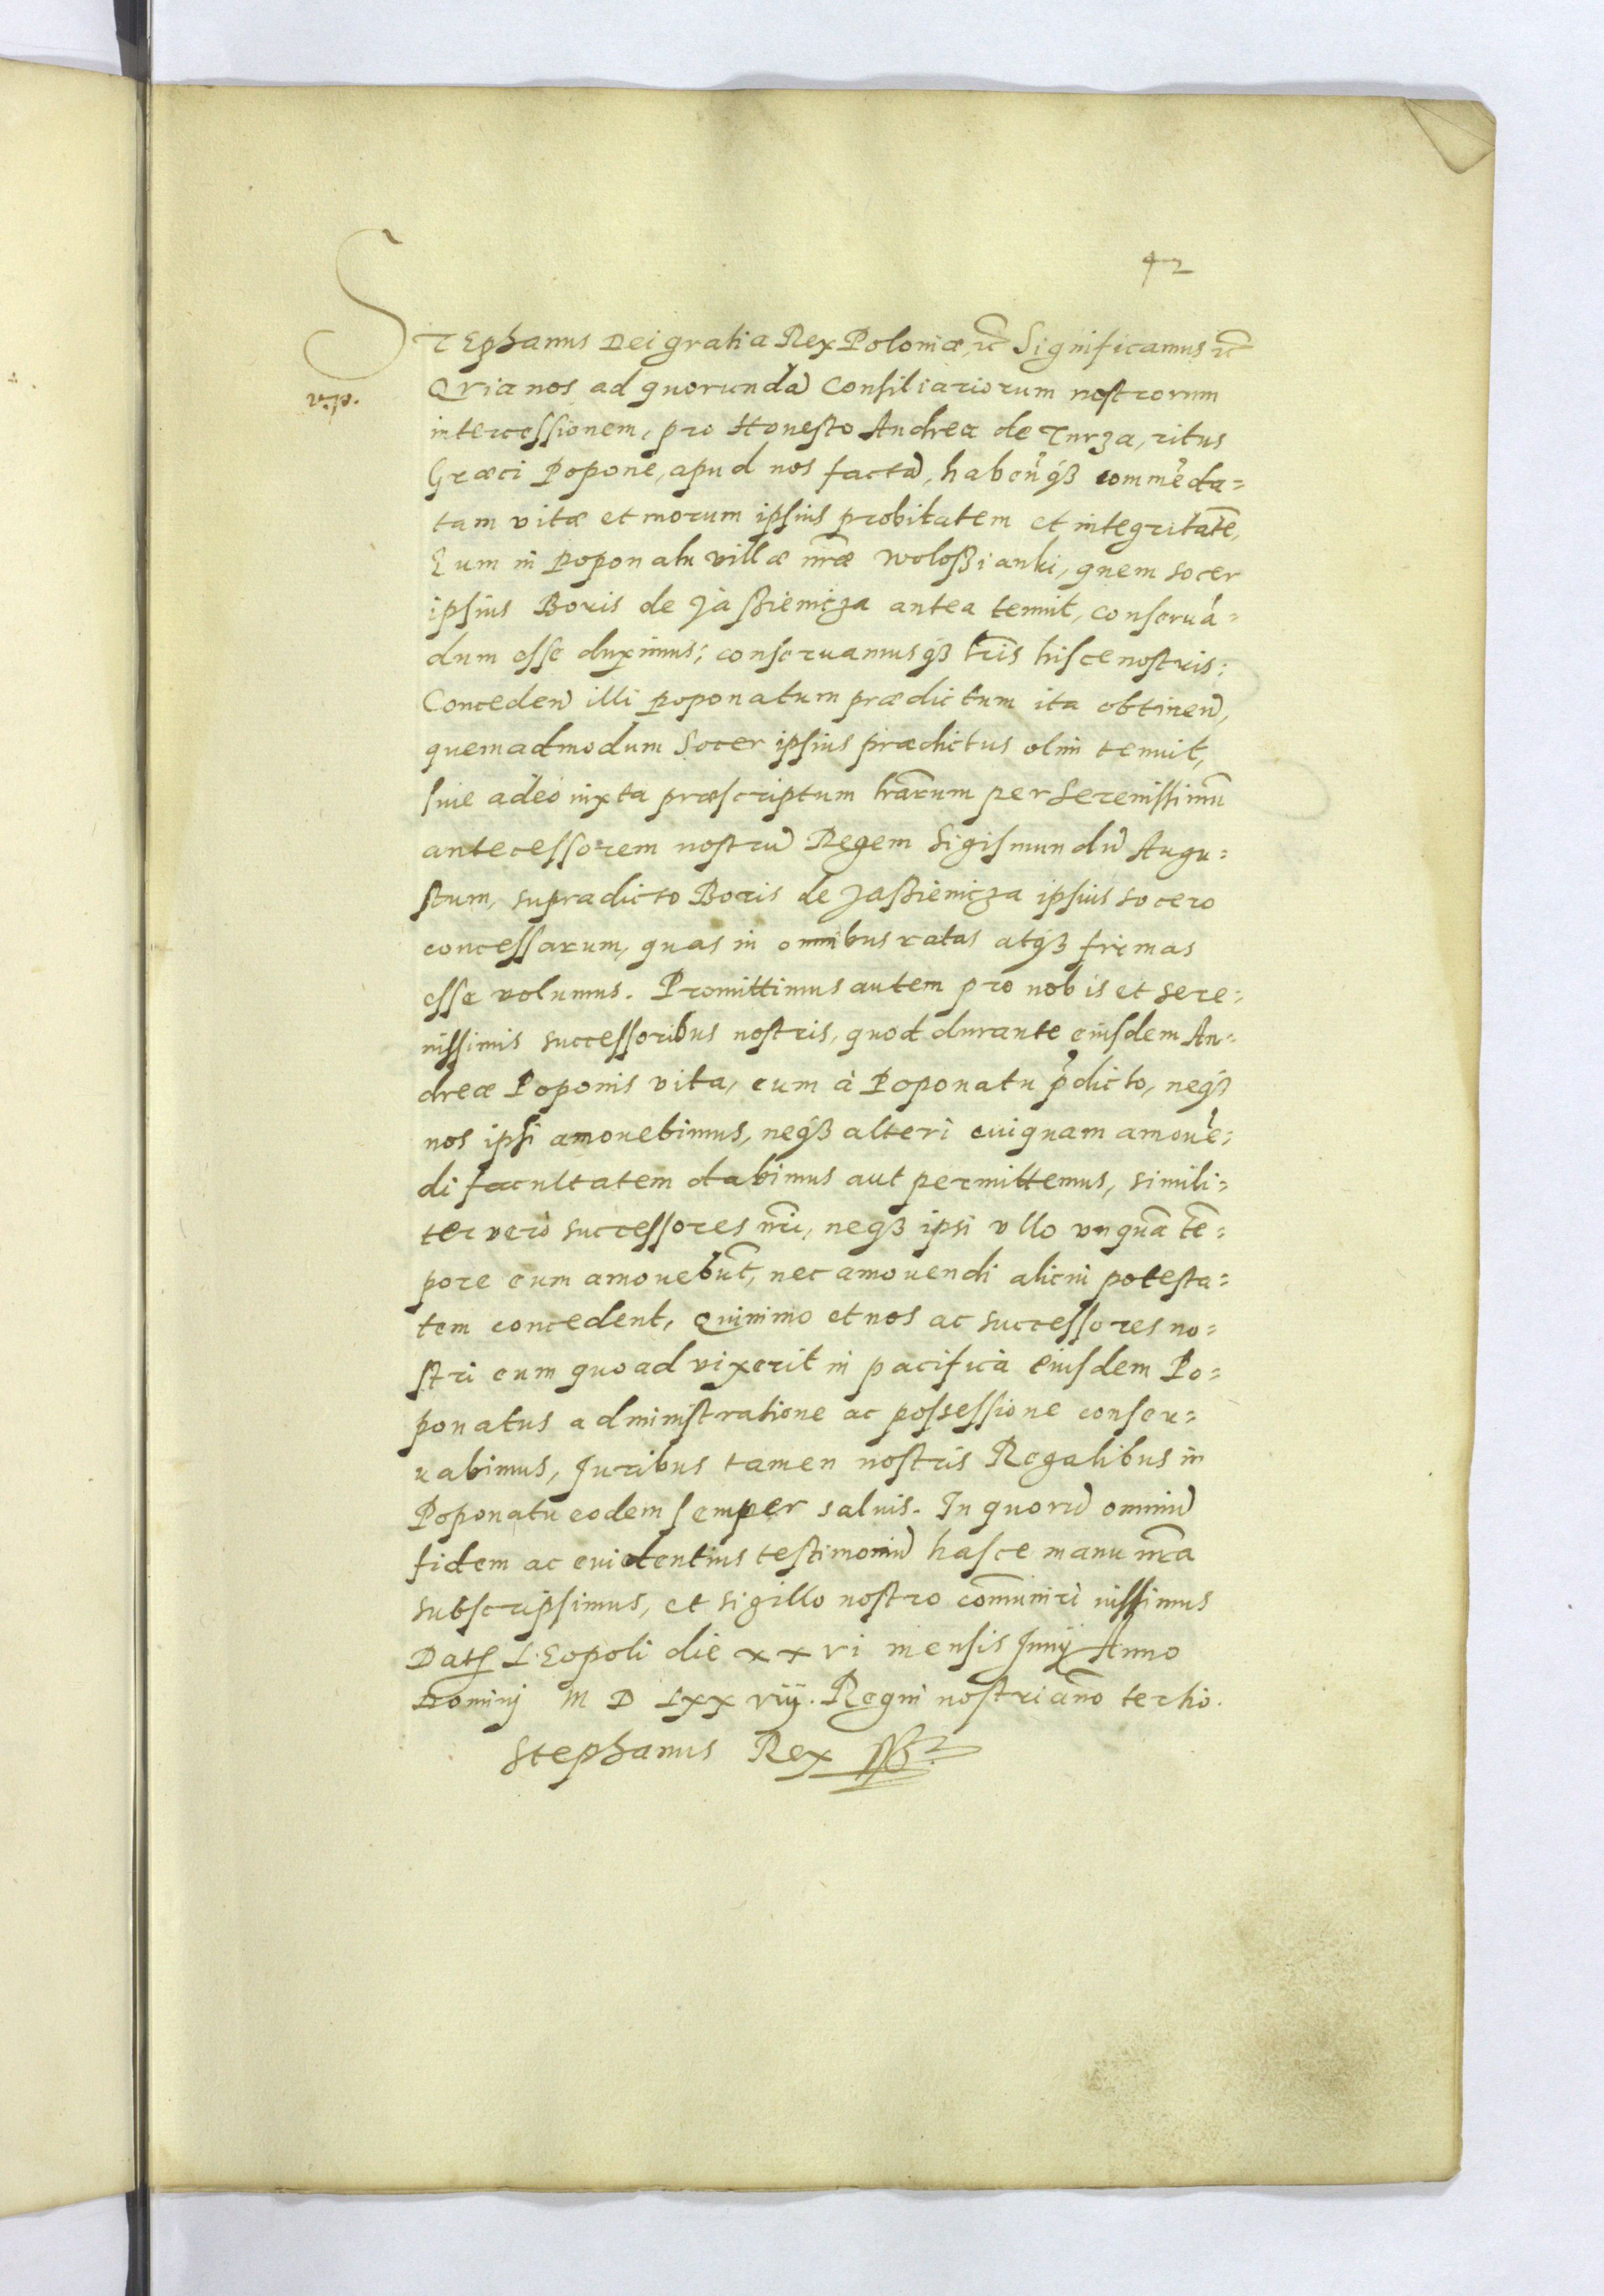 42
STEphanus Dei gratia Rex Poloniæ, etc̃ Significamus etc̃
Quia nos ad quorundã Consiliariorum nostrorum
intercessionem, pro Honesto Andrea de Turza, ritus
Græci Popone, apud nos factã, habenq́ꝫ commẽda=
tam vitæ et morum ipsius probitatem et integritatẽ,
Eum in Poponatu villæ nr̃æ Woloßianki, quem socer
ipsius Boris de Jaßienicza antea tenuit, conseruã=
dum esse duximus; conseruamusq́ꝫ lr̃is hisce nostris:
Conceden̄ illi Poponatum prædictum ita obtinen̄,
quemadmodum Socer ipsius prædictus olim tenuit,
siue adeò iuxta præscriptum lr̃arum per Serenissimũ
antecessorem nostrũ Regem Sigismundũ Augu=
stum, supradicto Boris de Jaßienicza ipsius socero
concessarum, quas in omnibus ratas atq́ꝫ firmas
esse volumus. Promittimus autem pro nobis et sere=
nissimis successoribus nostris, quod durante eiusdem An=
dreæ Poponis vita, eum à Poponatu p̃dicto, neq́ꝫ
nos ipsi amouebimus, neq́ꝫ alteri cuiquam amouẽ=
di facultatem dabimus aut permittemus, simili=
ter verò successores nr̃i, neqꝫ ipsi vllo vnquã tẽ=
pore eum amouebũt, nec amouendi alicui potesta=
tem concedent, Quinimo et nos ac successores no=
stri eum quoad vixerit in pacificà eiusdem Po=
ponatus administratione ac possessione conser=
uabimus, Juribus tamen nostris Regalibus in
Poponatu eodem semper saluis. In quorũ omniũ
fidem ac euidentius testimoniũ hasce manu nr̃a
subscripsimus, et sigillo nostro com̃uniri iussimus
Datꝭ LEopoli die xxvi mensis Junij Anno
Dominj M D Lxx viij. Regni nostri anño tertio.
Stephanus Rex